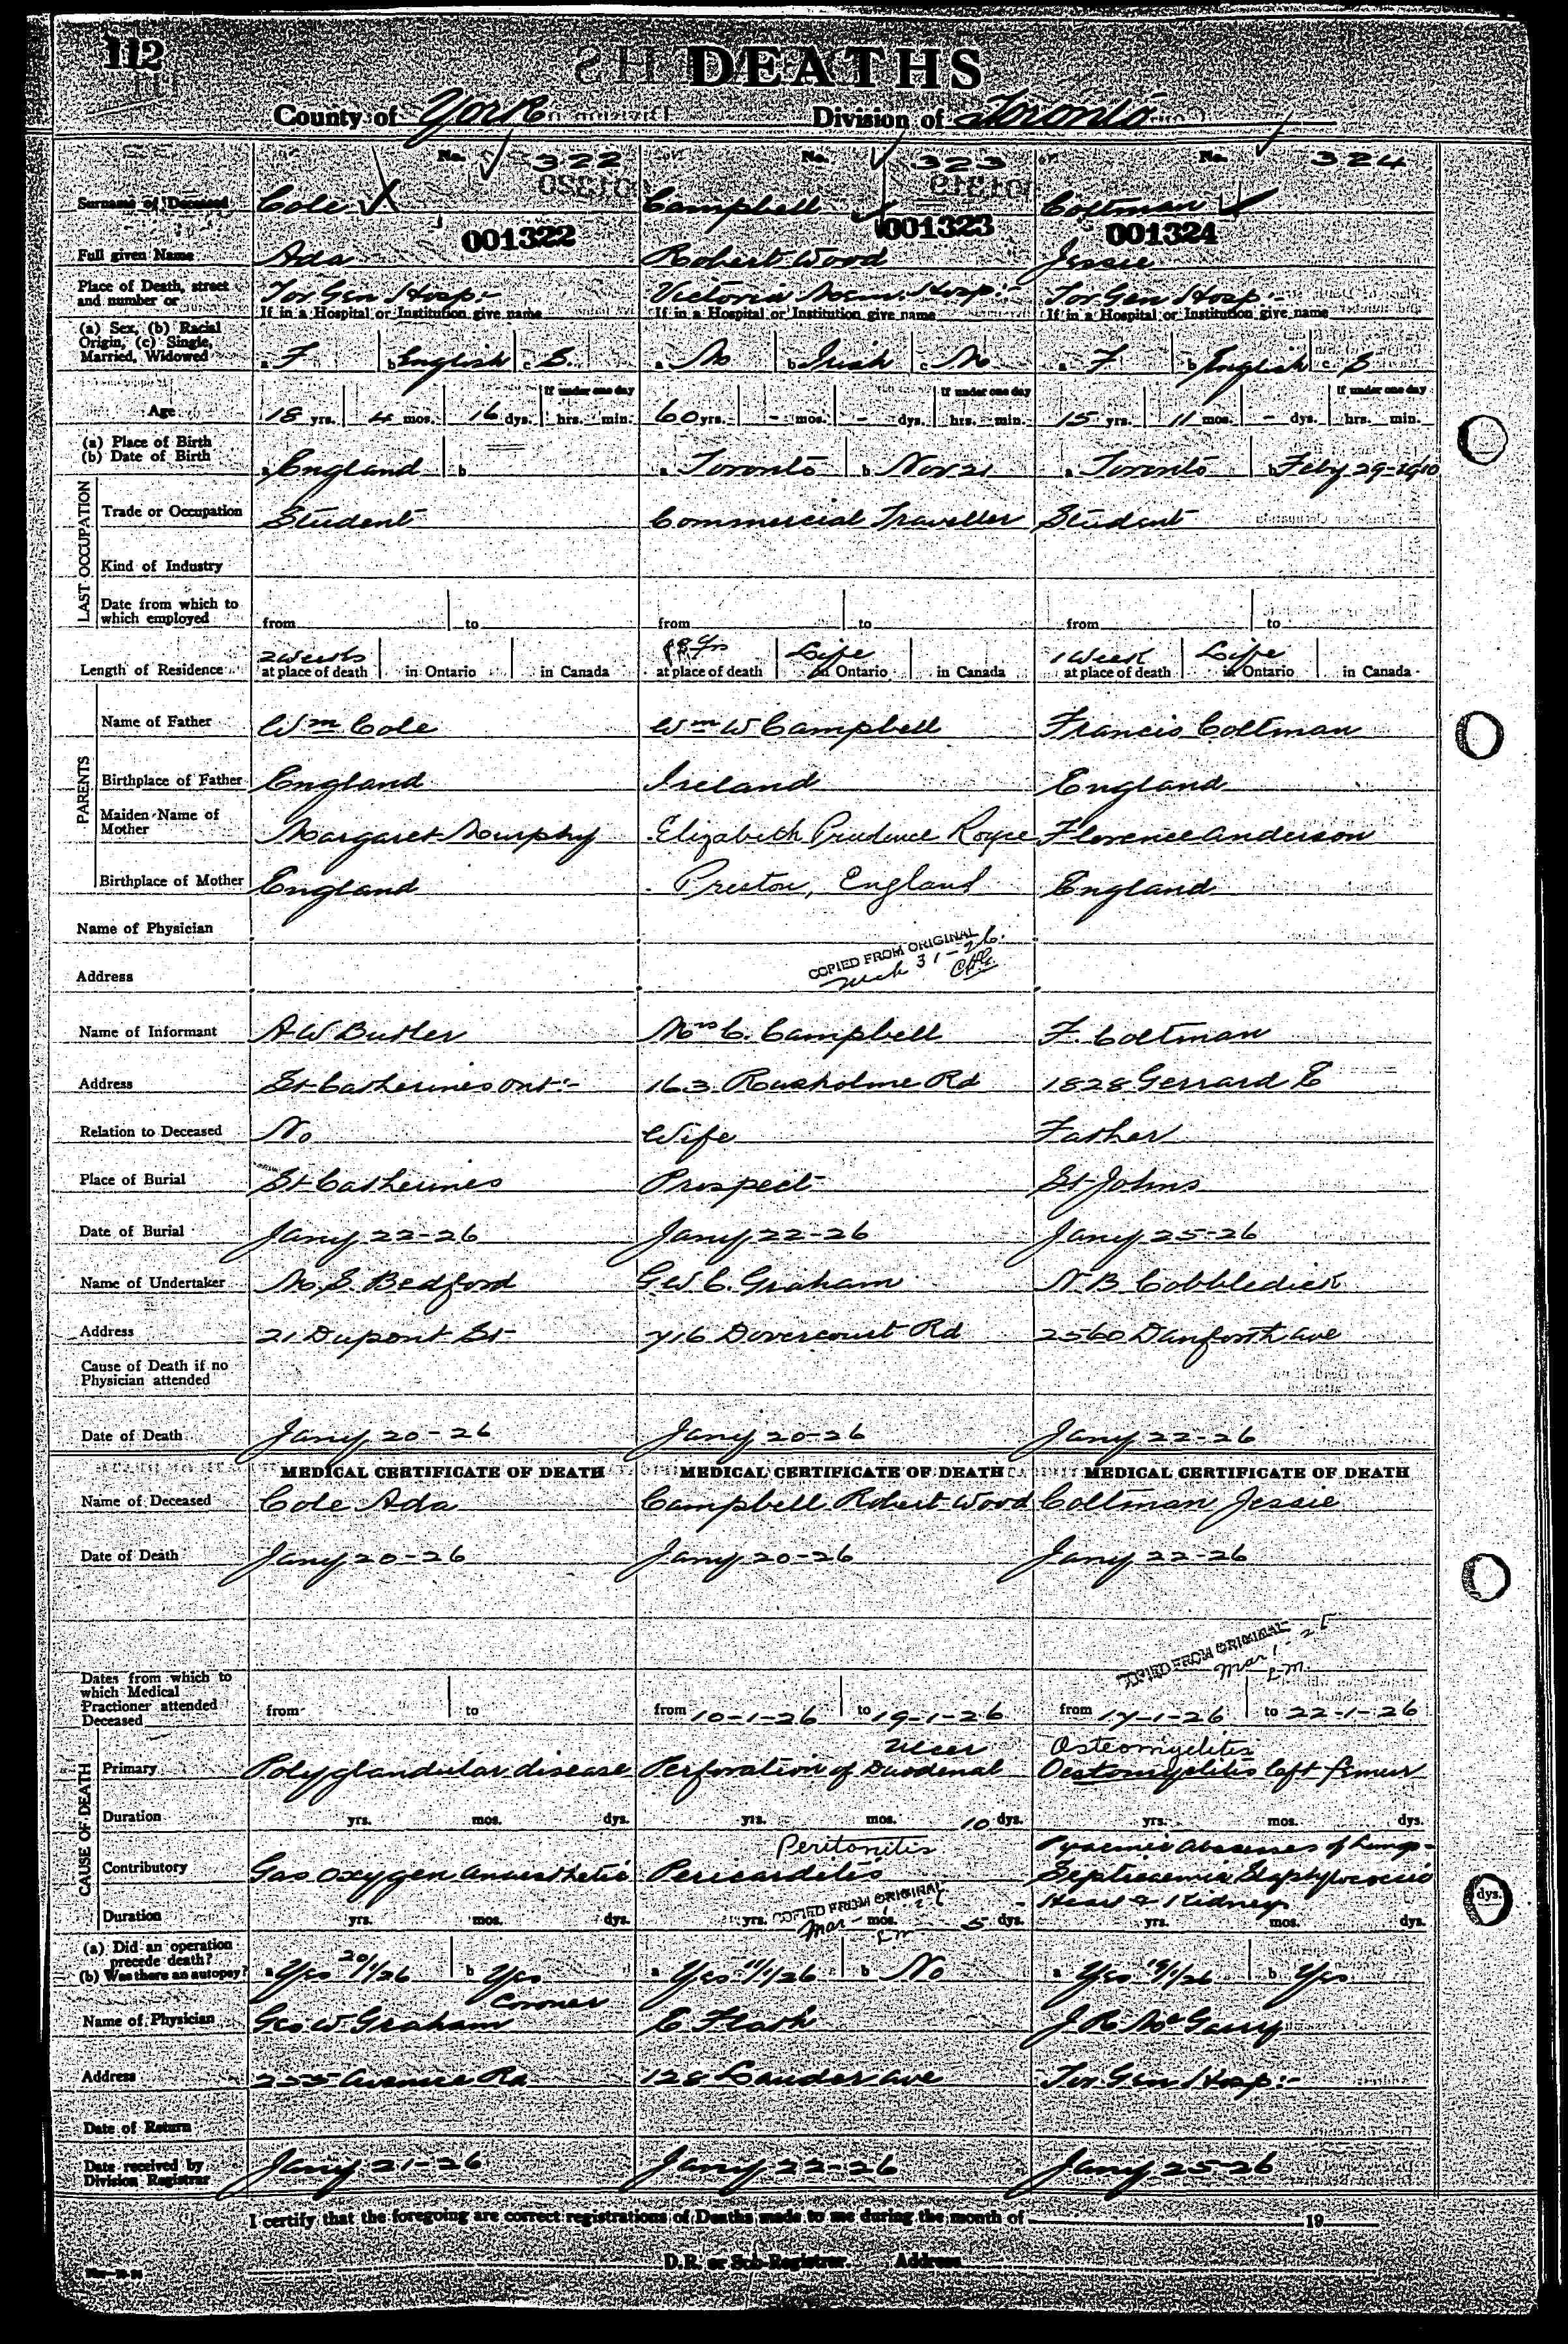 112
DEATHS
County of York Division of Toronto
No. 322 No. 323 No. 324
Surname of Deceased Cole Campbell Coltman
001322 001323 001324
Full given Name Ada Robert Wood Jessie
Place of Death, street and number or Tor Gen Hosp:- Victoria Mem. Hosp:- Tor Gen Hosp:-
If in a Hospital or Institution give name If in a Hospital or Institution give name If in a Hospital or Institution give name
(a) Sex, (b) Racial Origin, (c) Single, Married, Widowed a F b English c S. a M b Irish c M a F b English c S
If under one day If under one day If under one day
Age 18 yrs. 4 mos. 16 dys. hrs. min. 60 yrs. - mos. - dys. hrs. min. 15 yrs. 11 mos. - dys. hrs. min.
(a) Place of Birth
(b) Date of Birth a England b = a Toronto b Nov 21 a Toronto b Feby 29-1910
LAST OCCUPATION
Trade or Occupation Student Commercial Traveller Student
Kind of Industry
Date from which to which employed from to from to from to
Length of Residence 2 Weeks at place of death in Ontario in Canada 18 Yrs at place of death Life in Ontario in Canada 1 Week at place of death Life in Ontario in Canada
PARENTS
Name of Father Wm Cole Wm W Campbell Francis Coltman
Birthplace of Father England Ireland England
Maiden Name of Mother Margaret Murphy Elizabeth Prudence Royce Florence Anderson
Birthplace of Mother England Preston, England England
Name of Physician
COPIED FROM ORIGINAL
Mch 31-26.
Address
Name of Informant A W Butler Mrs C. Campbell F. Coltman
Address St Catherines Ont:- 163 Rusholme Rd 1828 Gerrard E
Relation to Deceased No Wife Father
Place of Burial St Catherines Prospect St Johns
Date of Burial Jany 22-26 Jany 22-26 Jany 25-26
Name of Undertaker M. S. Bedford G W C. Graham N. B. Cobbledick
Address 21 Dupont St 716 Dovercourt Rd 2560 Danforth Ave
Cause of Death if no Physician attended
Date of Death Jany 20-26 Jany 20-26 Jany 22-26
MEDICAL CERTIFICATE OF DEATH MEDICAL CERTIFICATE OF DEATH MEDICAL CERTIFICATE OF DEATH
Name of Deceased Cole Ada Campbell Robert Wood Coltman Jessie
Date of Death Jany 20-26 Jany 20-26 Jany 22-26
COPIED FROM ORIGINAL
Mar 1
L.M.
Dates from which to which Medical Practioner attended Deceased from to from 10-1-26 to 19-1-26 from 17-1-26 to 22-1-26
CAUSE OF DEATH
Ulcer Osteomyelitis
Primary Polyglandular disease Perforation of Duodenal Oestomyelitis left femur
Duration yrs. mos. dys. yrs. mos. 10 dys. yrs. mos. dys.
Peritonitis Pyaemic Abscesses of Lungs
Contributory Gas oxygen anaesthetic Pericarditis Septicaemia Staphylococcic
COPIED FROM ORIGINAL Heart & Kidney
Mar
Duration yrs. mos. dys. yrs. mos. 5 dys. yrs. mos. dys.
dys.
(a) Did an operation precede death?
(b) Was there an autopsy? a Yes 20/1/26 b Yes a Yes 11/1/26 b No a Yes 19/1/26 b Yes
Coroner
Name of Physician Geo W Graham E Flath J R McGarry
Address 255 Avenue Rd 128 Lauder Ave Tor Gen Hosp:-
Date of Return
Date received by Division Registrar Jany 21-26 Jany 22-26 Jany 25-26
I certify that the foregoing are correct registrations of Deaths made to me during the month of 19
D.R. or Sub-Registrar. Address